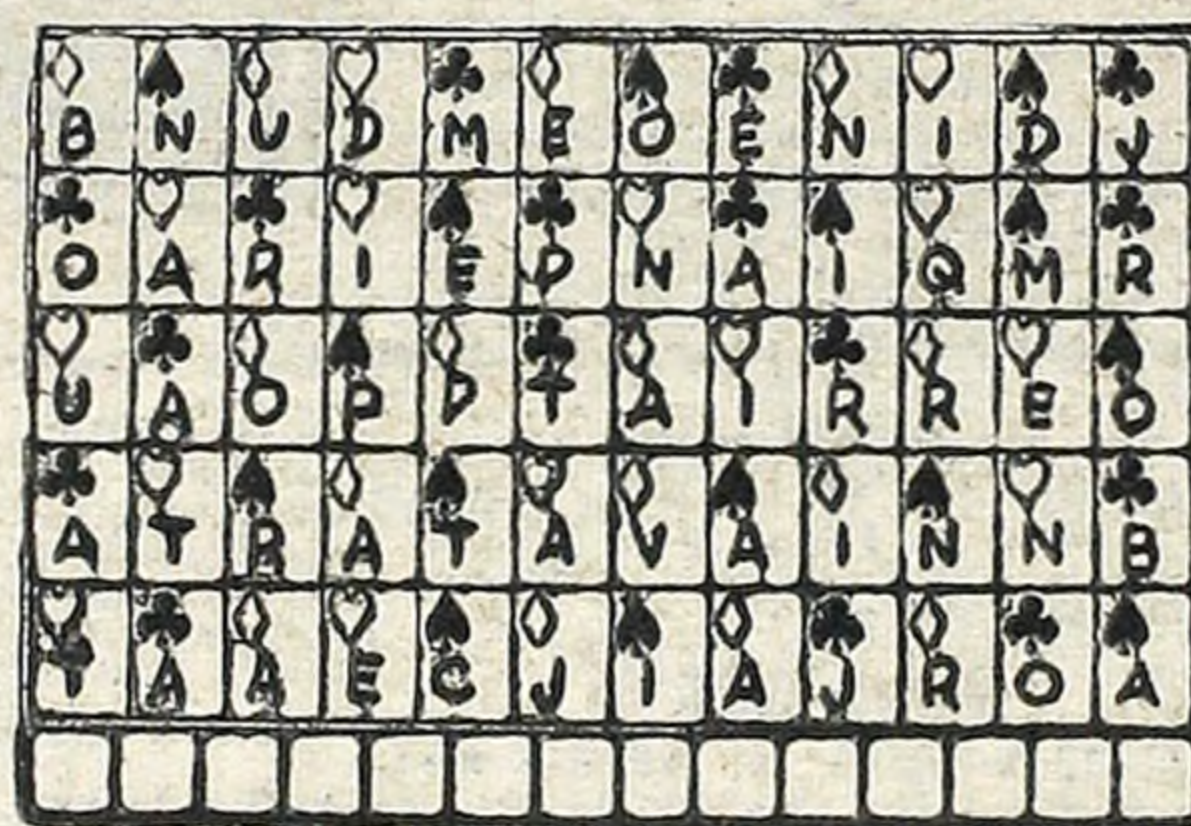 B N U D M E O E N I D J
O A R I E P N A I Q M R
U A O P P T A I R R E O
A T R A T A V A I N N B
T A A E C J I A J R O A